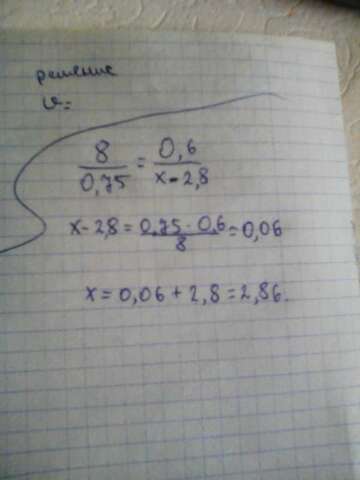 решение
v=
8/0,75 = 0,6/x-2,8
x-2,8 = 0,75·0,6/8 = 0,06
x = 0,06 + 2,8 = 2,86.